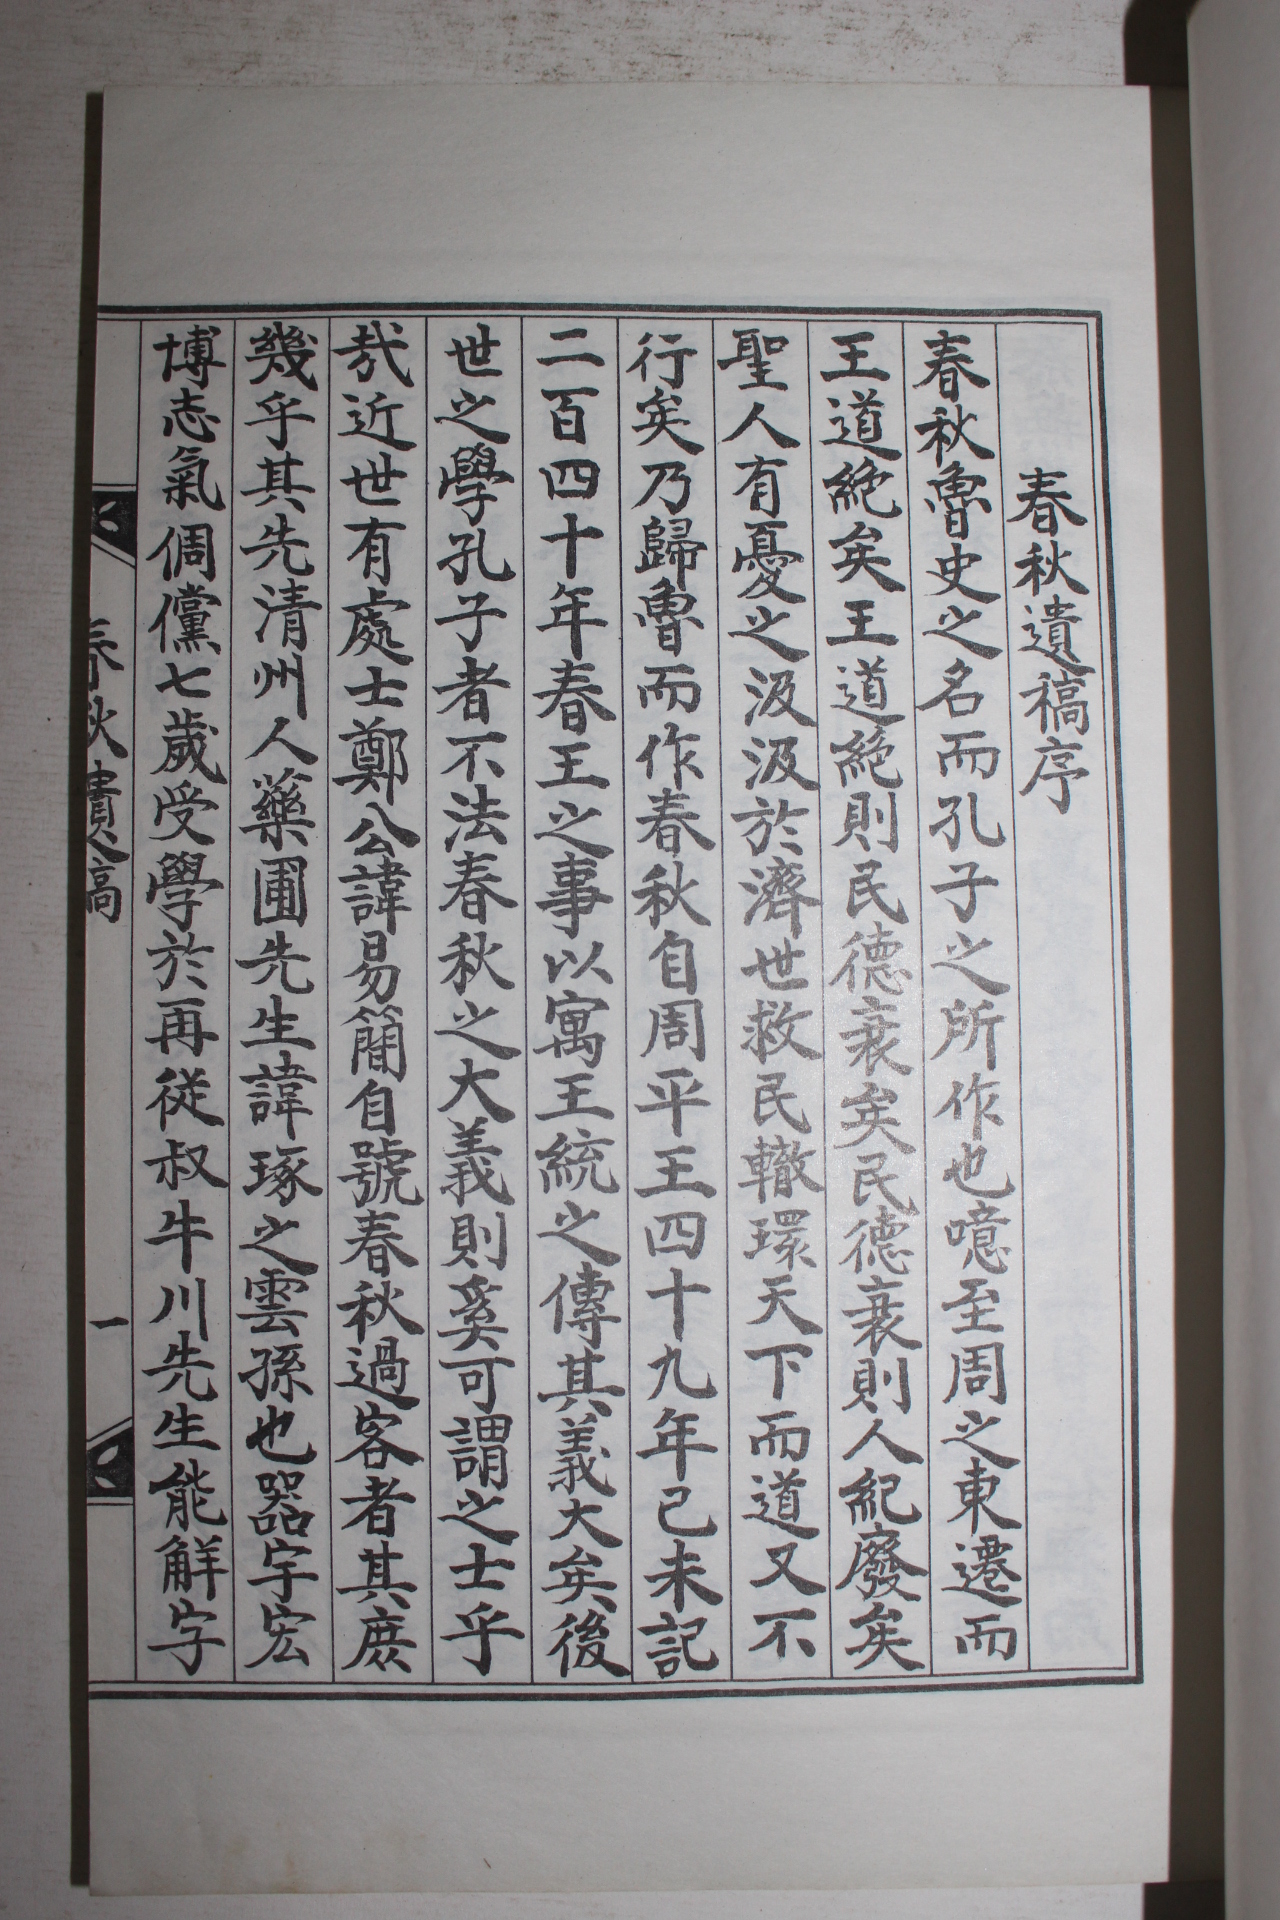 春秋遺稿序
春秋魯史之名而孔子之所作也噫至周之東遷而
王道絶矣王道絶則民德衰矣民德衰則人紀廢矣
聖人有憂之汲汲於濟世救民轍環天下而道又不
行矣乃歸魯而作春秋自周平王四十九年己未記
二百四十年春王之事以寓王統之傳其義大矣後
世之學孔子者不法春秋之大義則奚可謂之士乎
哉近世有處士鄭公諱易簡自號春秋過客者其庶
幾乎其先清州人藥圃先生諱琢之雲孫也器宇宏
博志氣倜儻七歲受學於再從叔牛川先生能解字
春秋遺稿
一